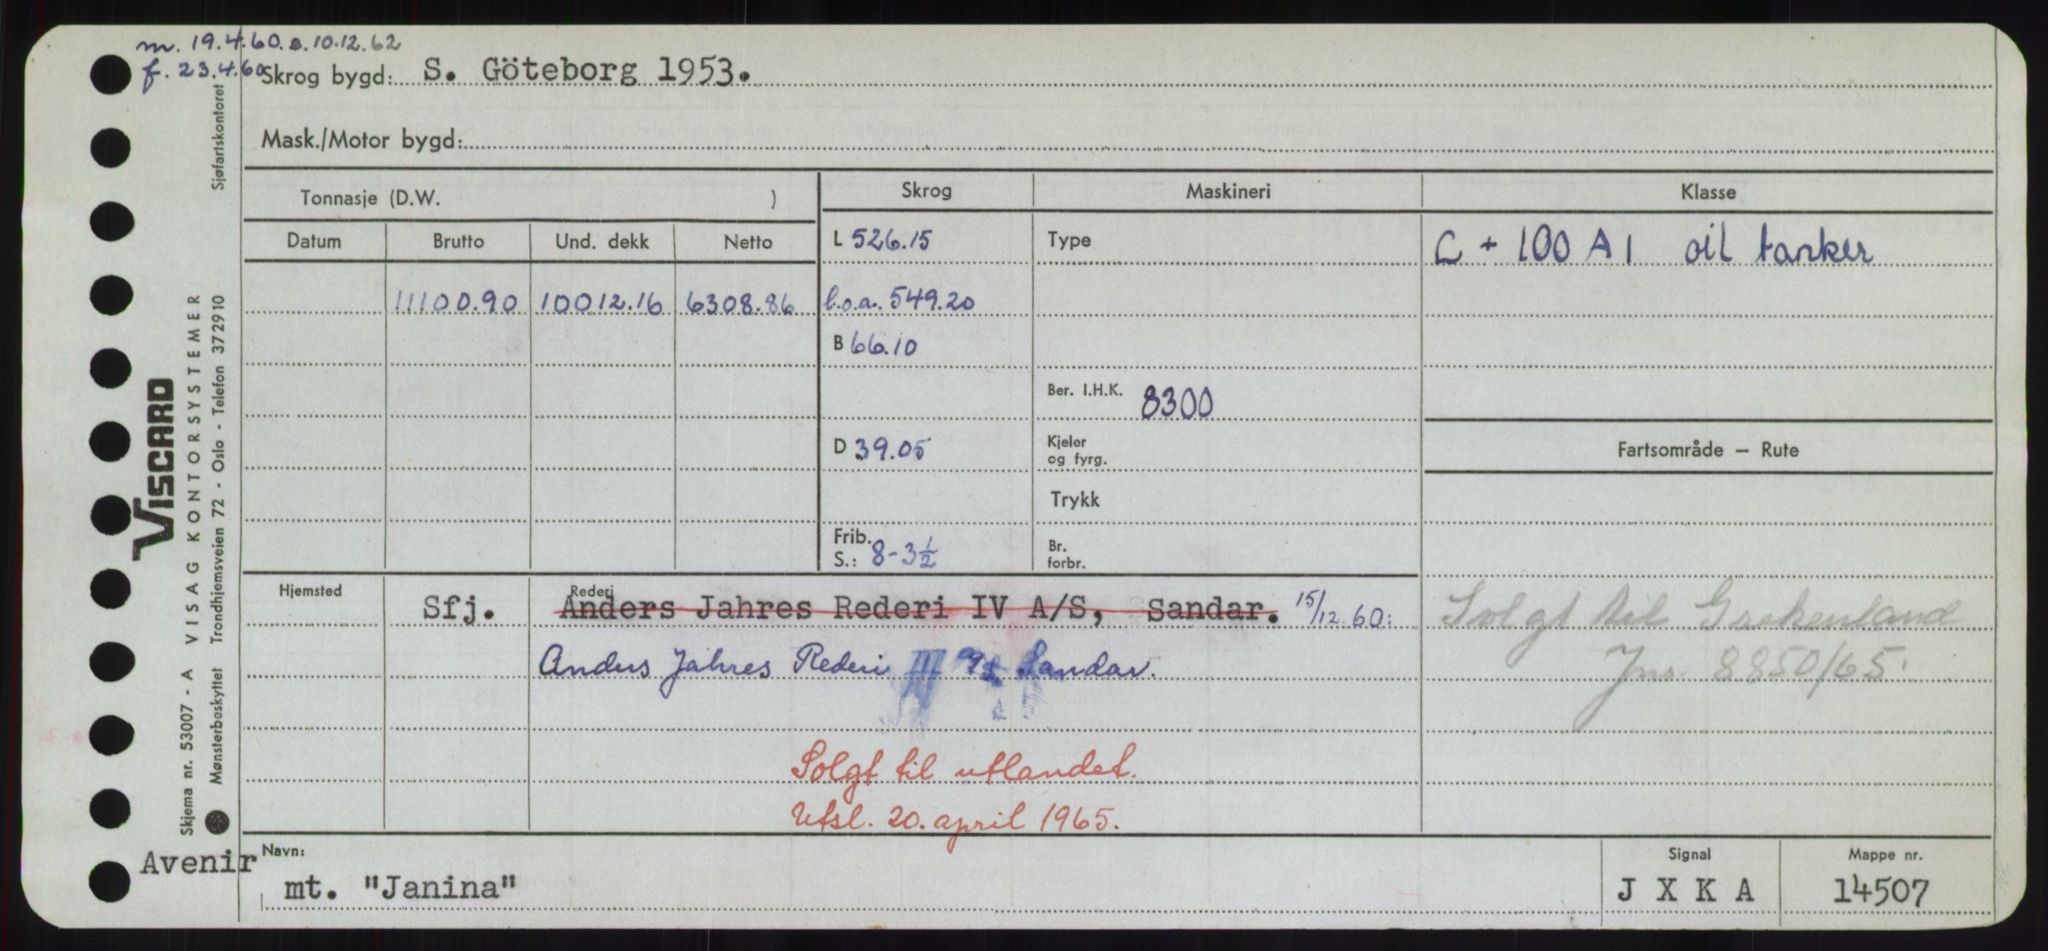 m. 19.4.60. s. 10.12.62
f. 23.4.60
Skrog bygd: S. Göteborg 1953.
Mask./Motor bygd:
Tonnasje (D.W. )
Skrog
Maskineri
Klasse
Datum Brutto Und. dekk Netto
L 526.15
Type
C + 100 A 1 oil tanker
11100.90 10012.16 6308.86
l.o.a. 549.20
B 66.10
Ber. I.H.K. 8300
D 39.05
Kjeler
og fyrg.
Fartsområde – Rute
Trykk
Frib.
S.: 8-3½
Br.
forbr.
Hjemsted
Sfj.
Rederi
Anders Jahres Rederi IV A/S, Sandar. 15/12.60:
Anders Jahres Rederi III A/S Sandar.
Solgt til Grekenland
Jnr. 8850/65.
Solgt til utlandet.
Utsl. 20. april 1965.
Avenir
Navn:
mt. "Janina"
Signal
J X K A
Mappe nr.
14507
Skjema nr. 53007 - A VISAG KONTORSYSTEMER
VISCARD
Mønsterbeskyttet Trondhjemsveien 72 - Oslo - Telefon 372910
Sjøfartskontoret